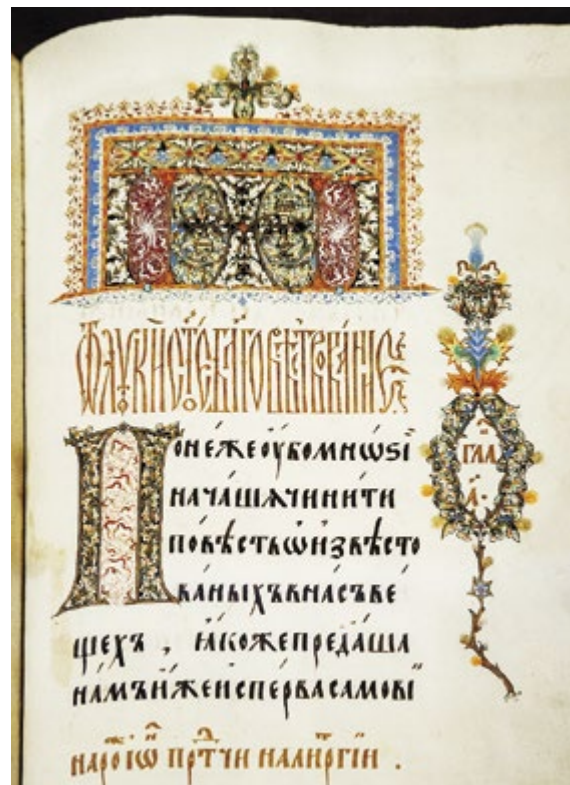 ѿ луки ст҃ое бл҃говѣствованїе
гла
а҃.
Понеже оубо мнѡѕі
начаша чинити
повѣсть ѡ извѣсто
ваныхъ внасъ ве
щехъ, ꙗкоже предаша
намъ иже исперва самови
на рож҃ іѡ прт҃чи на лиргіи.